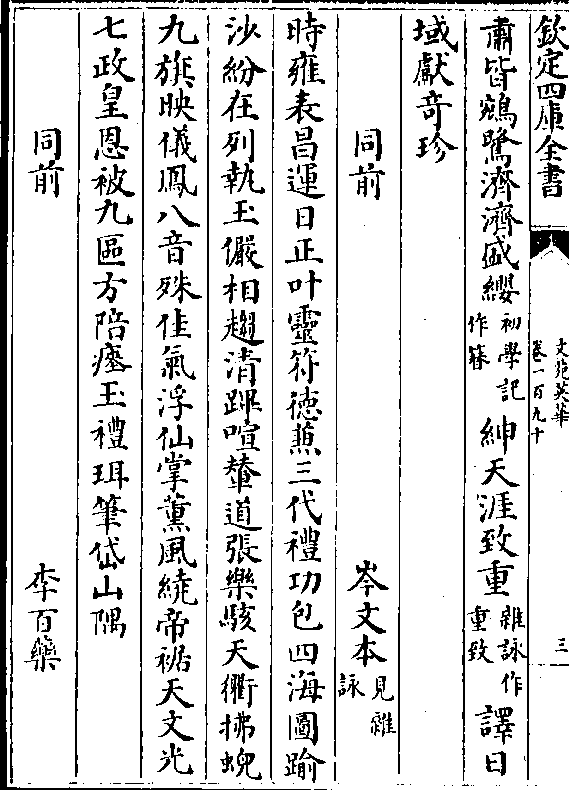 欽定四庫全書
文苑英華
卷一百九十
三
肅皆鵷鷺濟濟盛纓初學記作簪紳天涯致重雜詠作重致譯日
域獻奇珍
同前 岑文本見雜詠
時雍表昌運日正叶靈符德蕙三代禮功包四海圖踰
沙紛在列執玉儼相趨清蹕喧輦道張樂駭天衢拂蜺
九旗映儀鳳八音殊佳氣浮仙掌薰風繞帝裾天文光
七政皇恩被九區方陪瘞玉禮珥筆岱山隅
同前 李百藥